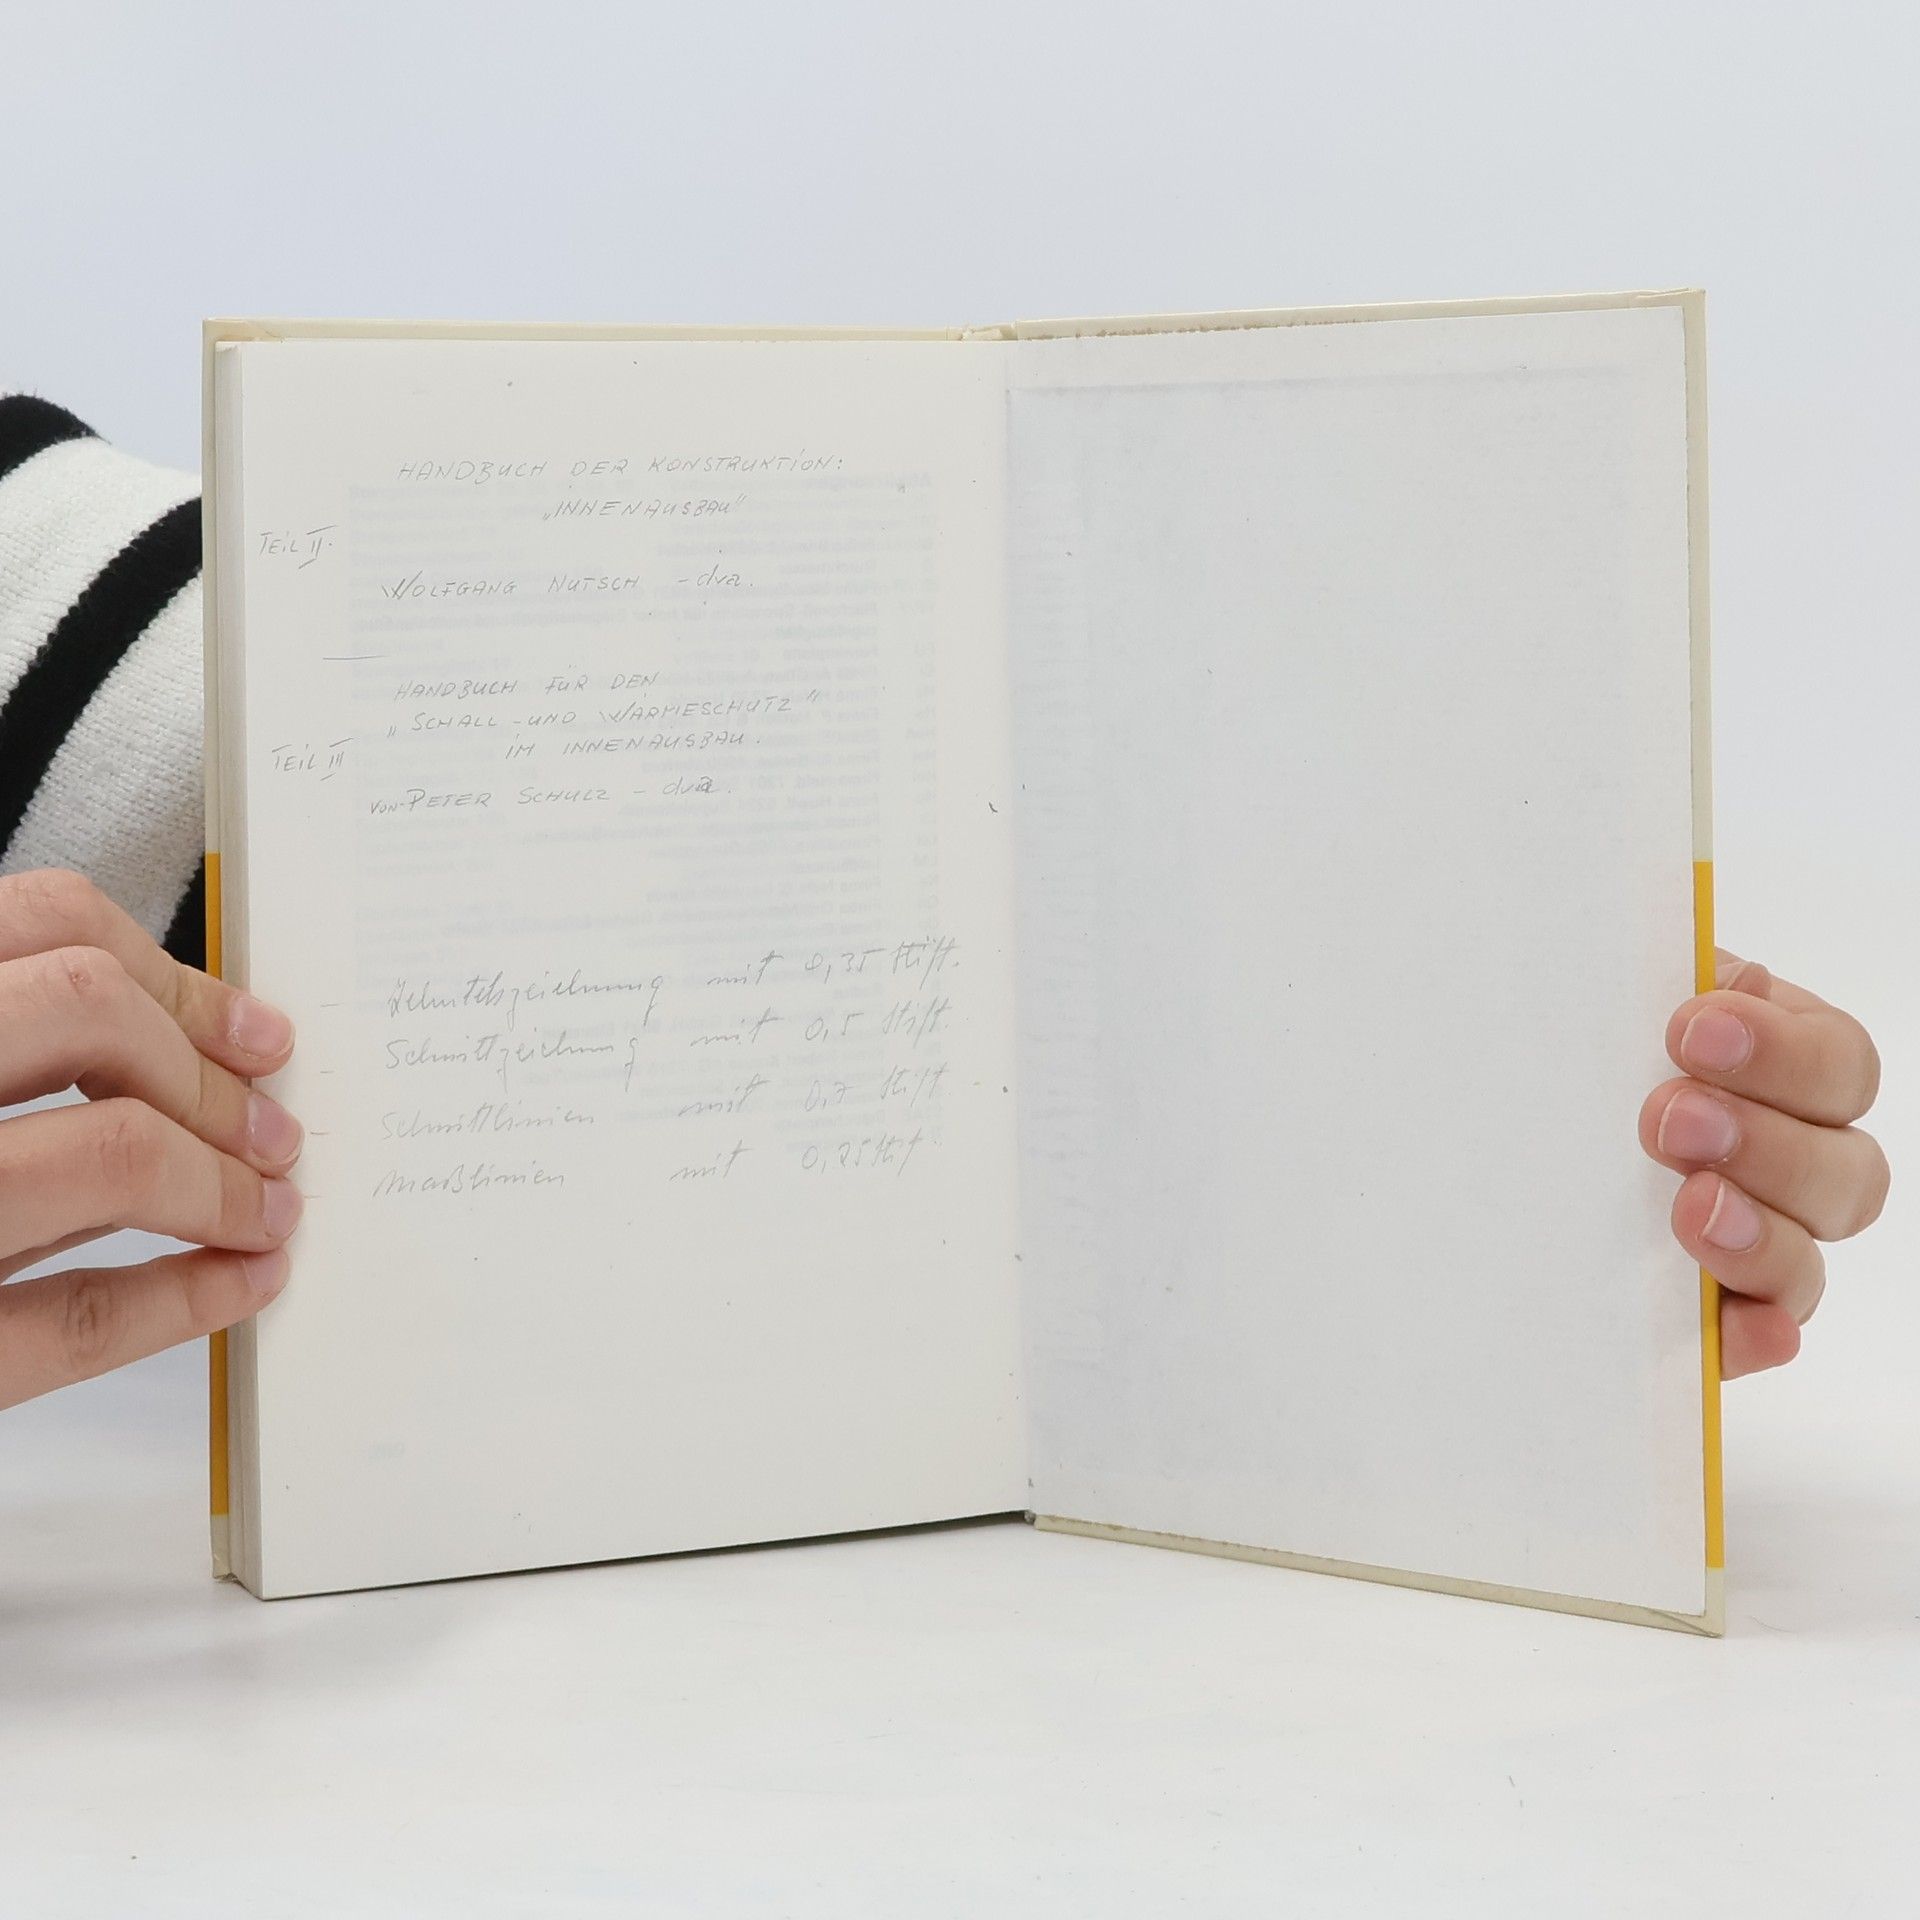 HANDBUCH DER KONSTRUKTION:
„INNENAUSBAU"
TEIL II.
WOLFGANG NUTSCH - dva.
HANDBUCH FÜR DEN
„SCHALL-UND WÄRMESCHUTZ"
IM INNENAUSBAU.
TEIL III
VON PETER SCHULZ - dva.
- mit 0,35 Stift.
- Schnittzeichnung mit 0,5 Stift.
- Schnittlinien mit 0,7 Stift
- Maßlinien mit 0,25 Stift.